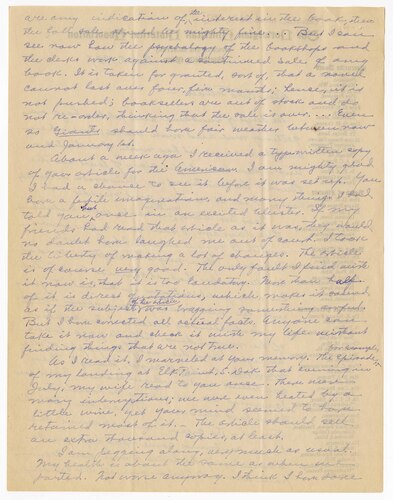 are any indication of the interest in the book, then
the talk was mighty fine... But I can
see now how the psychology of the bookshops and
the clerks work against a continued sale of any
book. It is taken for granted, sort of, that a novel
cannot last over four, five months; hence, it is
not pushed; booksellers are out of stock and do
not re-order, thinking that the sale is over.... Even
so Giants should have fair weather between now
and January 1st.
About a week ago I received a typewritten copy
of your article for the American. I am mighty glad
I had a chance to see it before it was set up. You
have a fertile imagination, and many things I had
told you but once in an excited minute. If my
friends had read that article as it was, they would
no doubt have laughed me out of court. I took
the liberty of making a lot of changes. The article
is of course very good. The only fault I find with
it now is, that it is too laudatory. More than half
of it is direct quotations, which makes it sound
as if the subject of the article was bragging
But I have corrected all actual facts. Anyone can
take it now and check it with my life without
finding things that are not true.
As I read it, I marveled at your memory. The episode, for example,
of my landing at Elk Point, S. Dak that evening in
July, my wife read to you once. There were
many interruptions; we were even heated by a
little wine, yet your mind seemed to have
retained most of it. – The article should sell
an extra thousand copies, at least.
I am pegging along, very much as usual.
My health is about the same as when we
parted. Not worse anyway. I think I have done